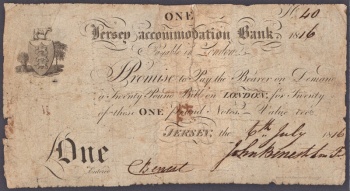 ONE
No. 40
Jersey accommodation Bank 1816
Payable in London
I Promise to Pay the Bearer on Demand
a Twenty Pound Bill on LONDON, for Twenty
of these ONE Pound Notes Value recd
JERSEY, the 6th July 1816
One
John Benest